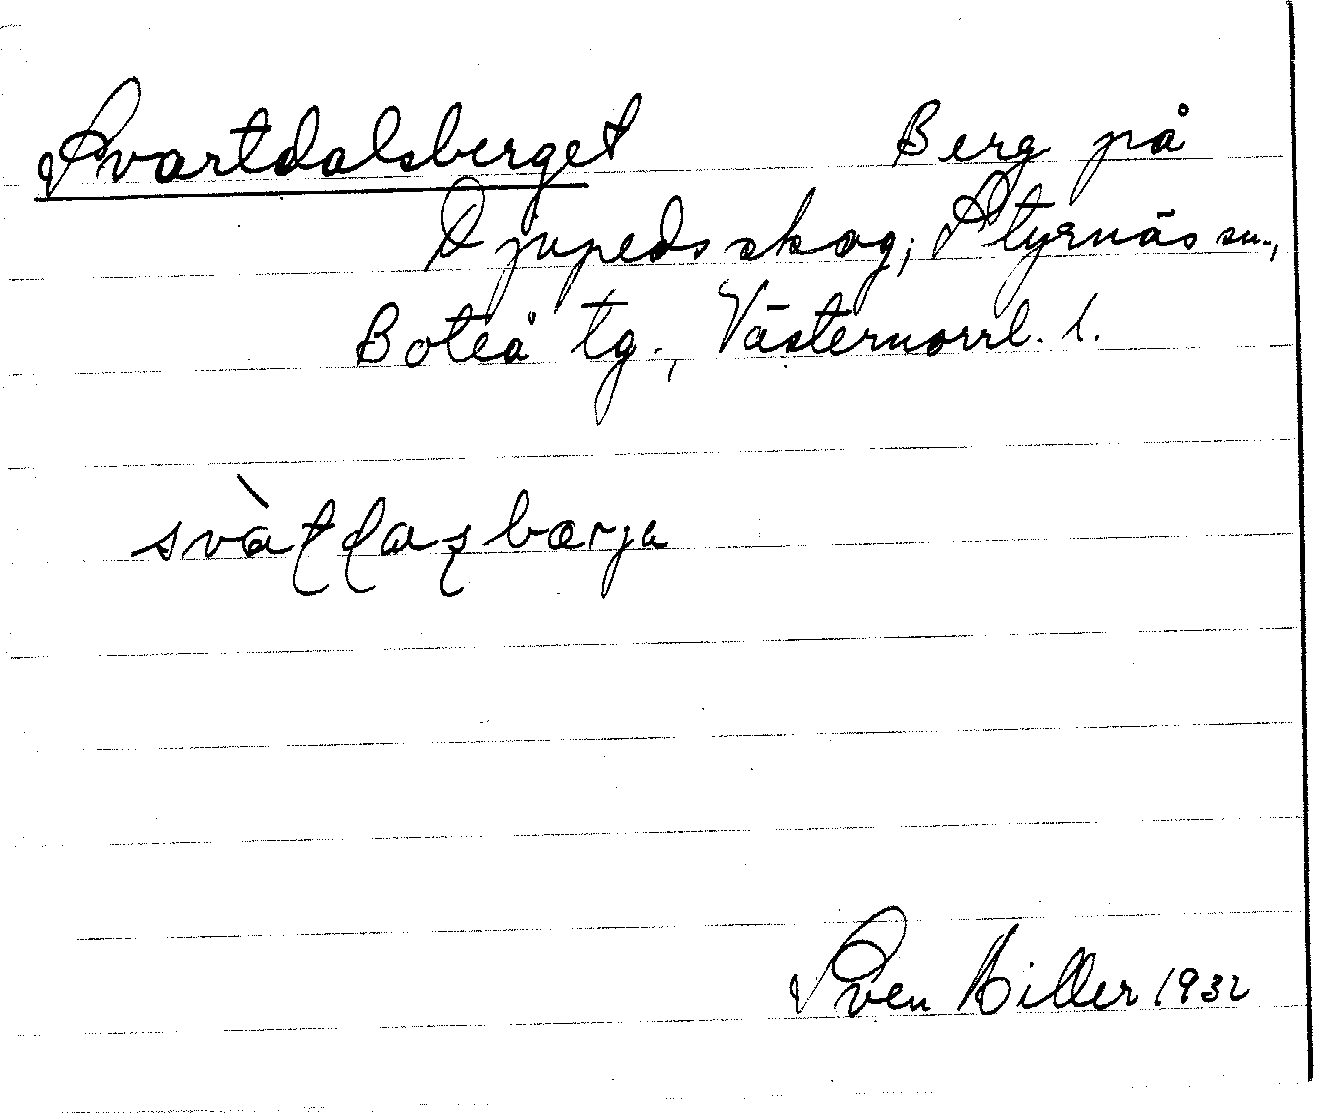 Svartdalsberget Berg på
Djupedsskog; Styrnäs sn.,
Boteå tg., Västernorrl. l.
svàʈɖaʂbærja
Sven Hiller 1932